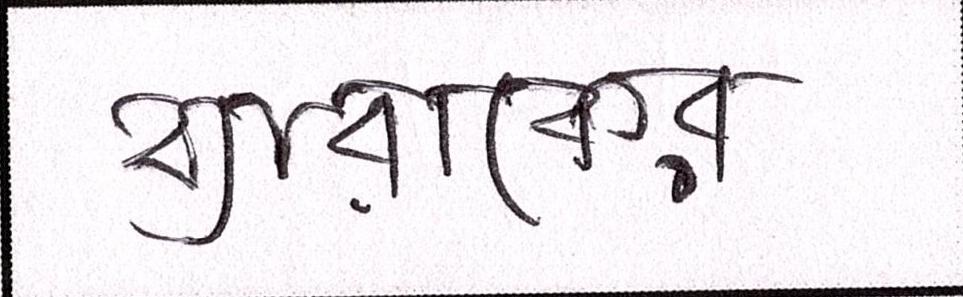 ব্যারাকের